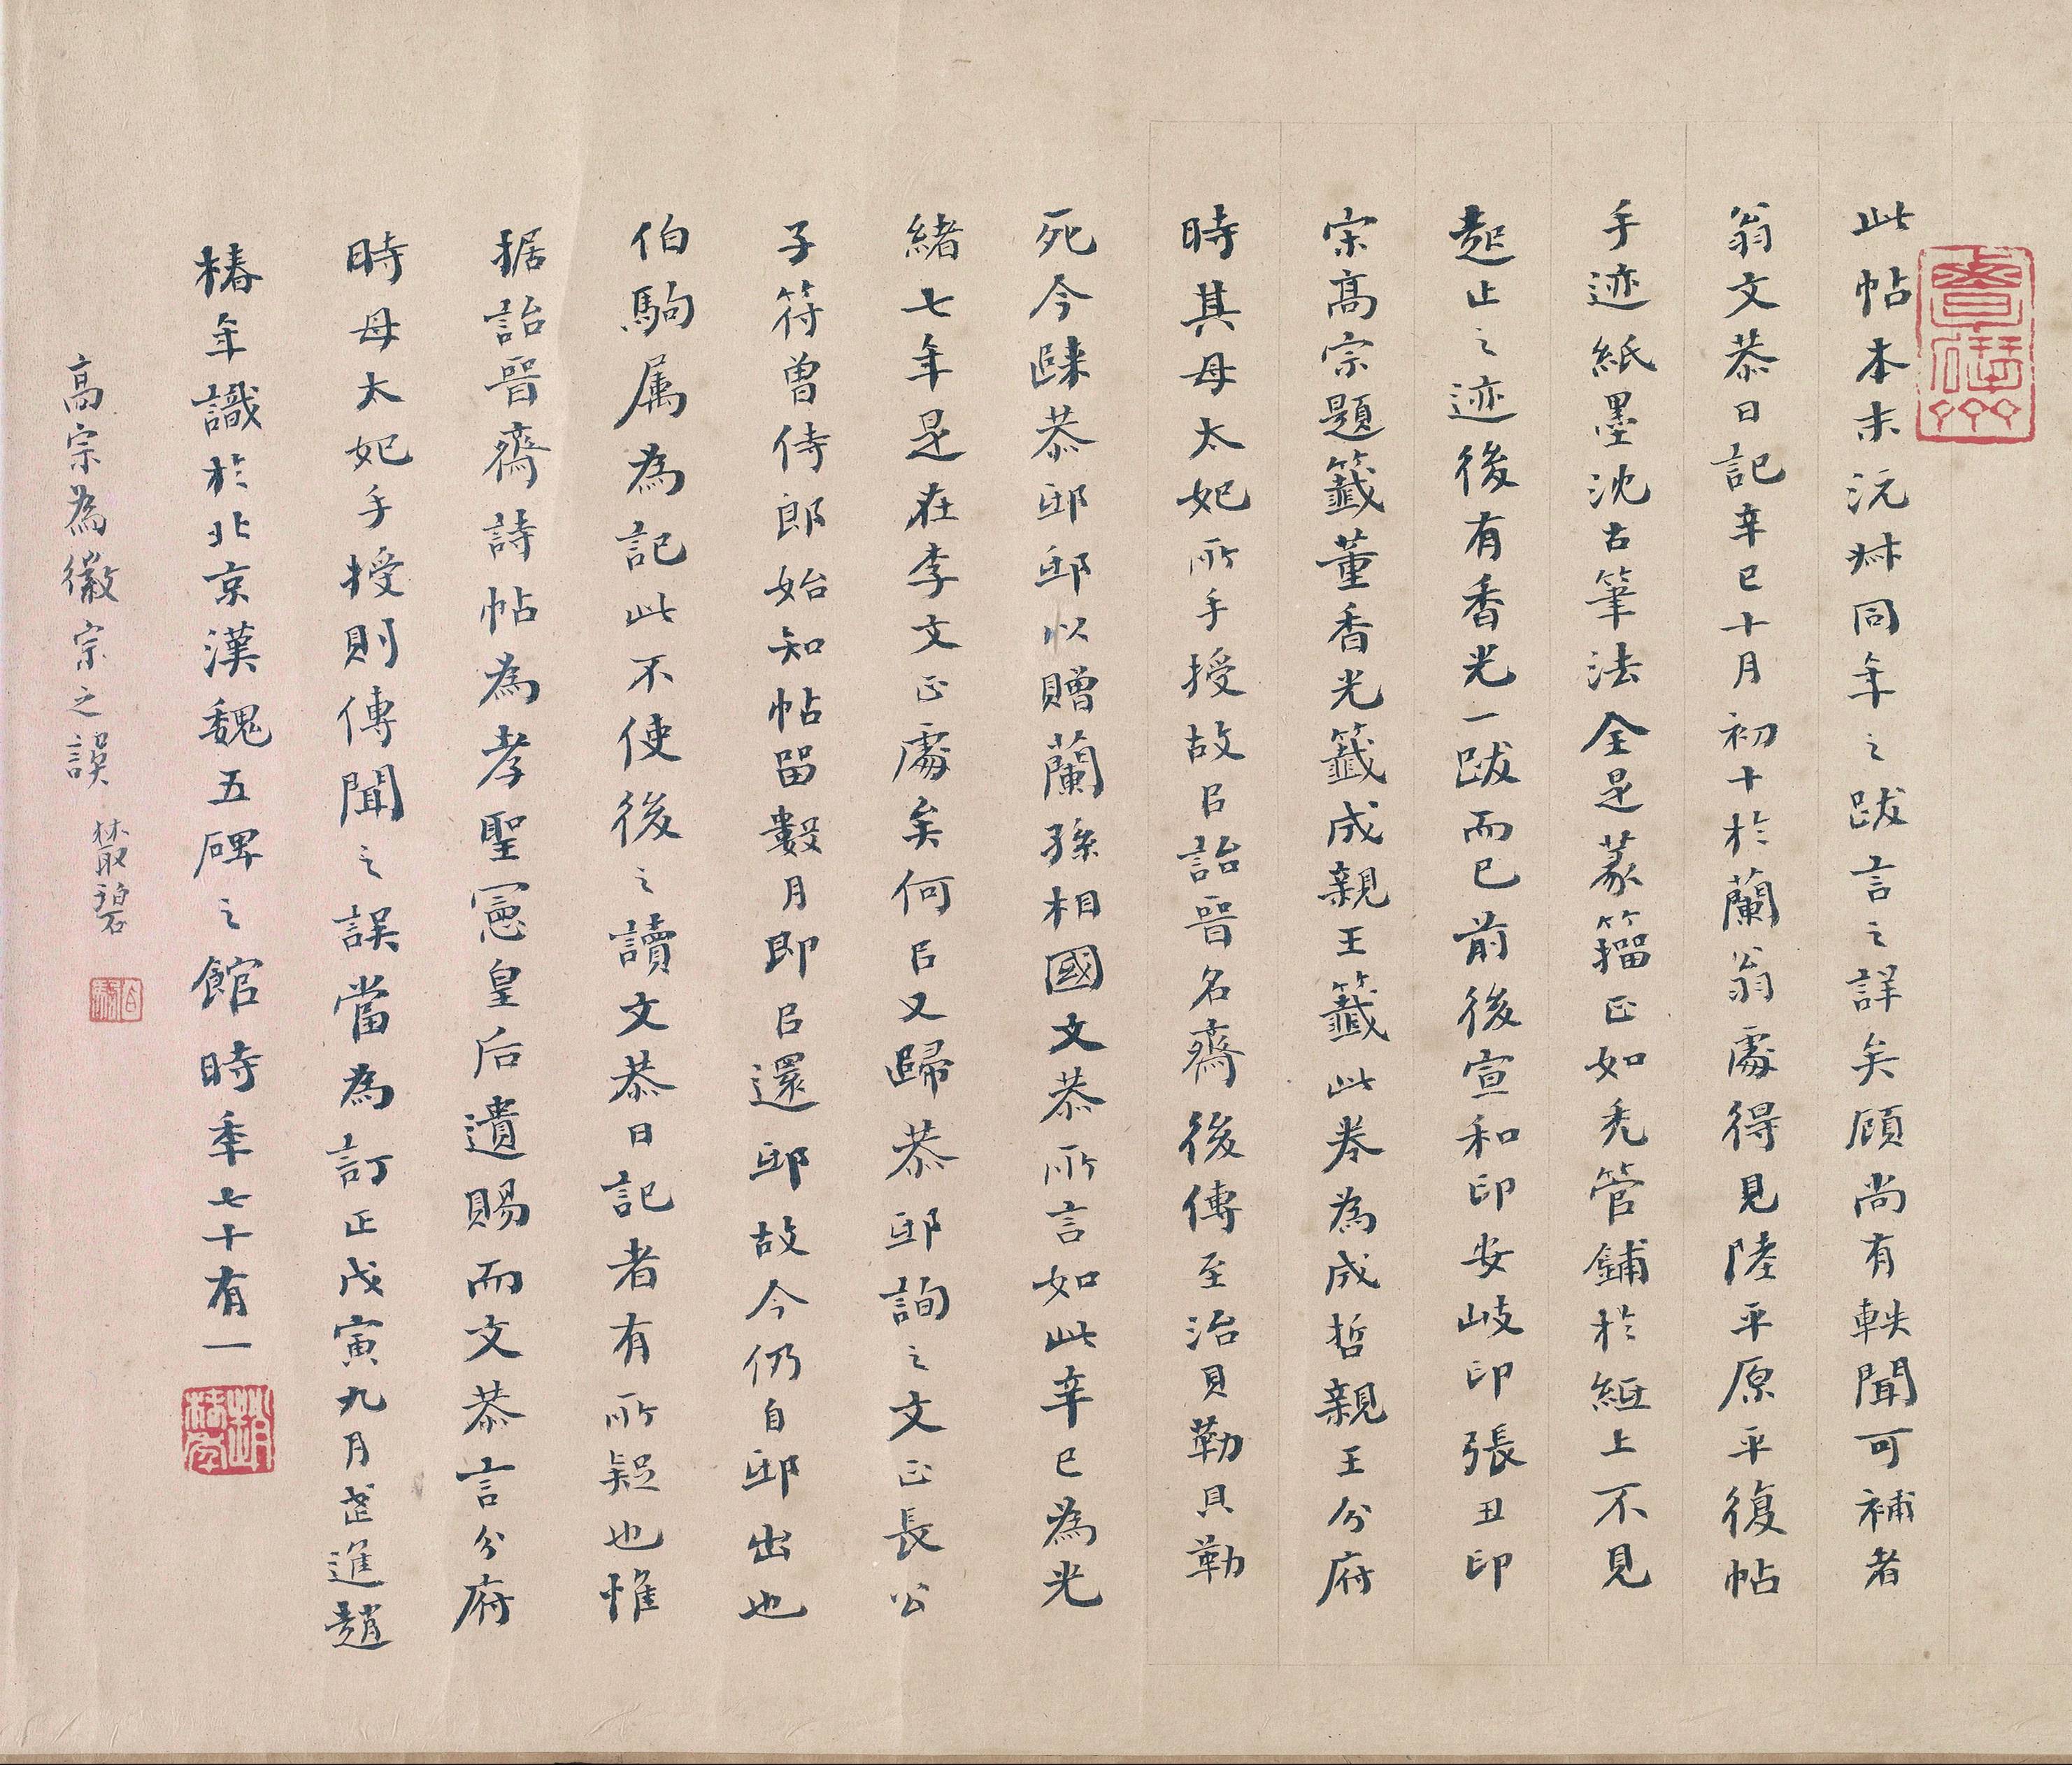 此帖本末沅叔同年之跋言之詳矣顧尚有軼聞可補者
翁文恭日記辛巳十月初十於蘭翁處得見陸平原平復帖
手迹紙墨沈古筆法全是篆籀正如禿管鋪於紙上不見
起止之迹後有香光一跋而已前後宣和印安岐印張丑印
宗高宗題籤董香光籤成親王籤此卷為成哲親王分府
時其母太妃所手授故㠯詒晉名齋後傳至治貝勒貝勒
死今歸恭邸邸以贈蘭孫相國文恭所言如此辛巳為光
緒七年是在李文正處矣何㠯又歸恭邸詢之文正長公
子符曾侍郎始知帖留數月即㠯還邸故今仍自邸出也
伯駒属為記此不使後之讀文恭日記者有所疑也惟
据詒晉齋詩帖為孝聖憲皇后遺賜而文恭言分府
時母太妃手授則傳聞之誤當為訂正戊寅九月望進趙
椿年識於北京漢魏五碑之館時年七十有一
高宗為徽宗之誤 叢碧